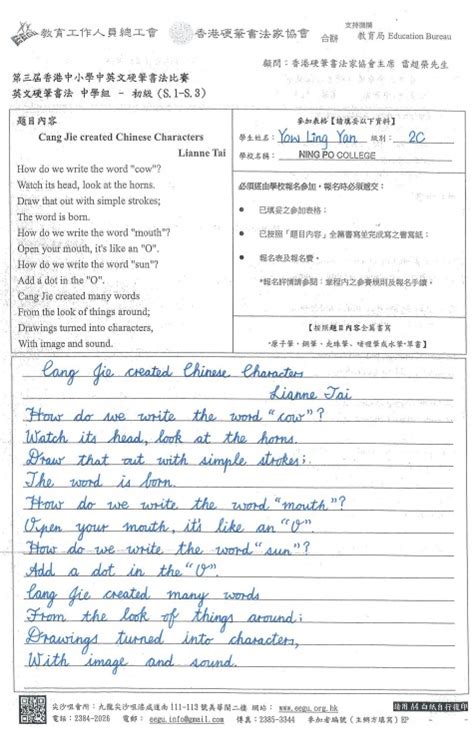 教育工作人員總工會
香港硬筆書法家協會
合辦
支持機構
教育局 Education Bureau
顧問：香港硬筆書法家協會主席
第三屆香港中小學中英文硬筆書法比賽
英文硬筆書法 中學組 - 初級 (S.1-S.3)
題目內容
Cang Jie created Chinese Characters
Lianne Tai
How do we write the word "cow"?
Watch its head, look at the horns.
Draw that out with simple strokes;
The word is born.
How do we write the word "mouth"?
Open your mouth, it's like an "O".
How do we write the word "sun"?
Add a dot in the "O".
Cang Jie created many words
From the look of things around;
Drawings turned into characters,
With image and sound.
參加表格【請填妥以下資料】
學生姓名：Yow Ling Yan 級別：2C
學校名稱：NING PO COLLEGE
必須經由學校報名參加，報名時必須遞交：
• 已填妥之參加表格；
• 已按照「題目內容」全篇書寫並完成寫之書寫紙；
• 報名表及報名費。
*報名詳情請參閱：章程內之參賽規則及報名手續。
【按照題目內容全篇書寫】
Cang Jie created Chinese Characters
Lianne Tai
How do we write the word "cow"?
Watch its head, look at the horns.
Draw that out with simple strokes;
The word is born.
How do we write the word "mouth"?
Open your mouth, it's like an "O".
How do we write the word "sun"?
Add a dot in the "O".
Cang Jie created many words
From the look of things around;
Drawings turned into characters,
With image and sound.
尖沙咀會所：九龍尖沙咀漆咸道南 111-113 號美華閣二樓 網站：www.eegu.org.hk
電話：2384-2026 電郵：eegu.info@gmail.com 傳真：2385-3344 參加者編號 (主辦方填寫) EP
請用 A4 白紙自行復印